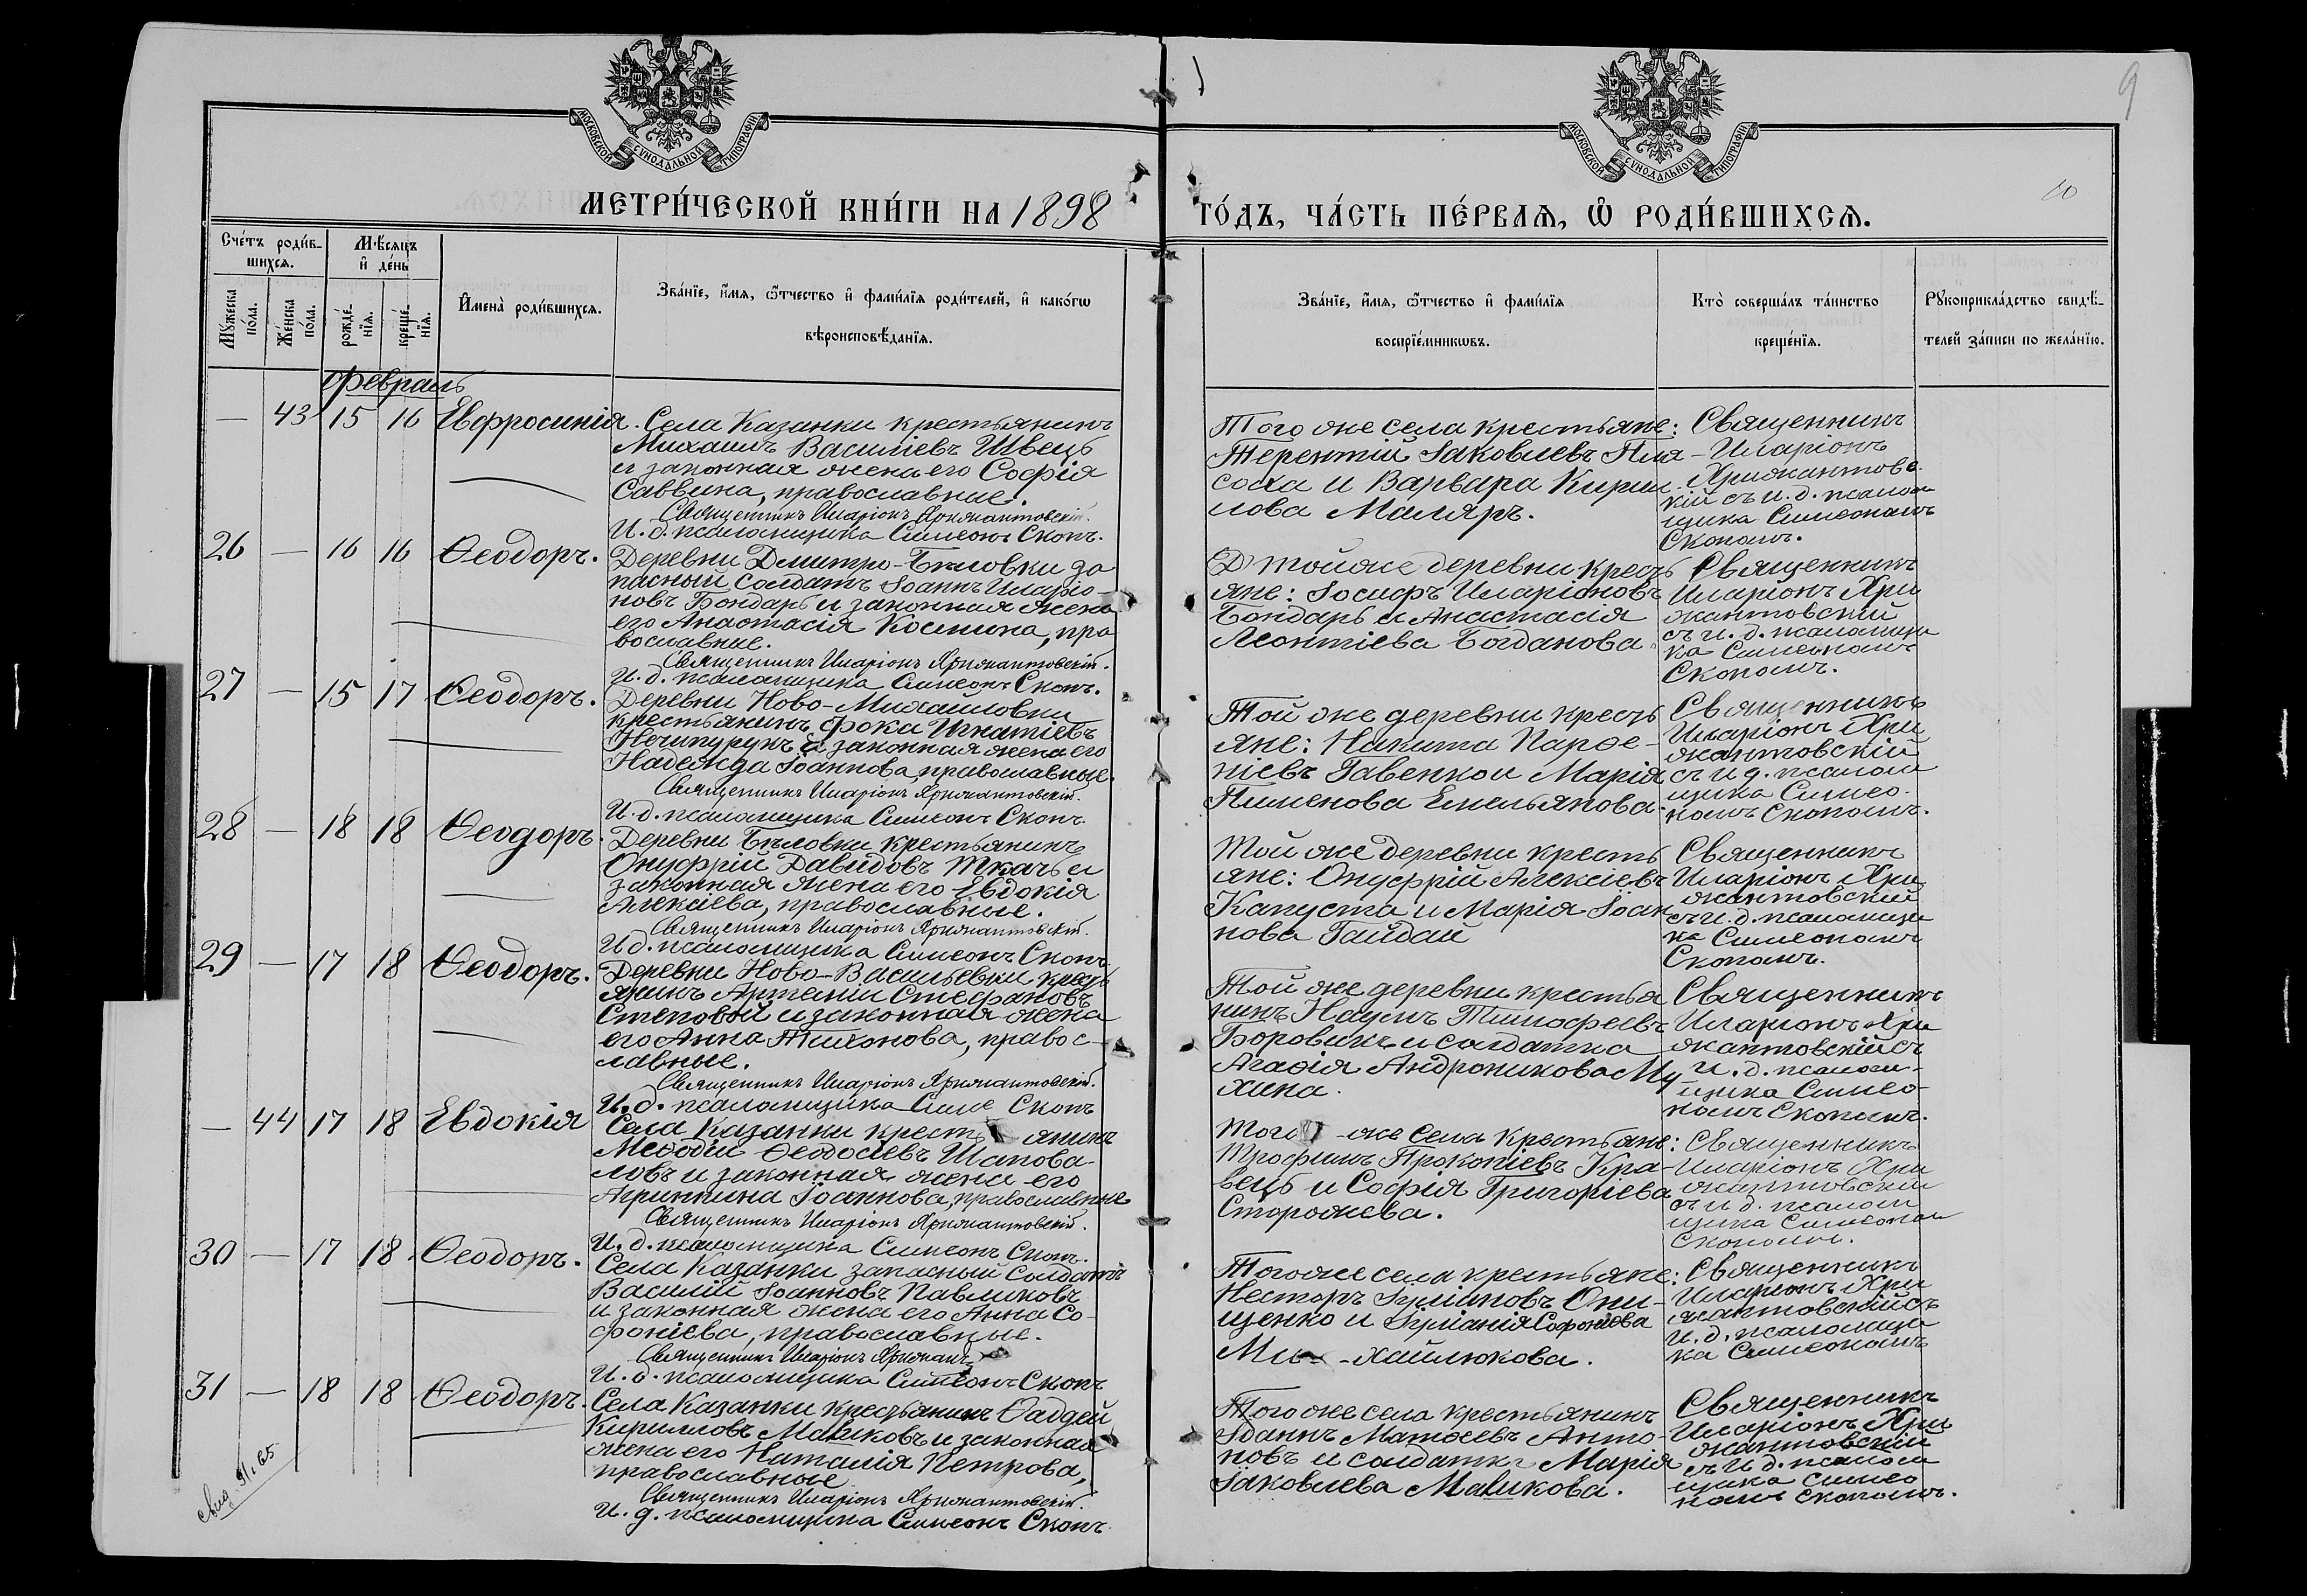 МОСКОВСКОЙ СѴНОДАЛЬНОЙ ТИПОГРАФІИ
МОСКОВСКОЙ СѴНОДАЛЬНОЙ ТИПОГРАФІИ
9
10
МЕТРИ́ЧЕСКОЙ КНИ́ГИ НА 1898
ГО́ДЪ, ЧА́СТЬ ПЕ́РВАѦ, Ѡ҆ РОДИ́ВШИХСѦ.
Сче́тъ роди́в-
шихсѧ.
Мѣ́сяцъ
и҆ де́нь
Мꙋ́жеска
по́ла.
Же́нска
по́ла.
рожде́-
нїѧ.
креще́-
нїѧ.
И҆мена̀ роди́вшихсѧ.
Зва́нїе, и҆́мѧ, ѻ҆́тчество и҆ фами́лїѧ роди́телей, и҆ како́гѡ
вѣроисповѣ́данїѧ.
Зва́нїе, и҆́мѧ, ѻ҆́тчество и҆ фами́лїѧ
воспрїе́мникѡвъ.
Кто̀ соверша́лъ та́инство
креще́нїѧ.
Рꙋкоприкла́дство свидѣ́-
телей за́писи по жела́нїю.
Февраль
— 43 15 16 Евфросинія.
Села Казанки крестьянинъ
Михаилъ Василіевъ Швецъ
и законная жена его Софія
Саввина, православные.
Священникъ Иларіонъ Хрижантовскій.
И. д. псаломщика Симеонъ Скопъ.
Того же села крестьяне:
Терентій Іаковлевъ Пля-
соха и Варвара Кирил
лова Маляръ.
Священникъ
Иларіонъ
Хрижантовс
кій съ и. д. псалом
щика Симеономъ
Скопомъ.
26 — 16 16 Ѳеодоръ.
Деревни Дмитро-Бѣловки за
пасный солдатъ Іоаннъ Иларіо-
новъ Бондарь и законная жена
его Анастасія Космина, пра
вославные.
Священникъ Иларіонъ Хрижантовскій.
И. д. псаломщика Симеонъ Скопъ.
Той же деревни кресть
яне: Іосифъ Иларіоновъ
Бондарь и Анастасія
Леонтіева Богданова.
Священникъ
Иларіонъ Хри
жантовскій
съ и. д. псаломщи
ка Симеономъ
Скопомъ.
27 — 15 17 Ѳеодоръ.
Деревни Ново-Михаиловки
крестьянинъ Фока Игнатіевъ
Нечипурукъ и законная жена его
Надежда Іоаннова, православные.
Священникъ Иларіонъ Хрижантовскій.
И. д. псаломщика Симеонъ Скопъ.
Той же деревни кресть
яне: Никита Парѳе-
ніевъ Гавенко и Марія
Пименова Емельянова.
Священникъ
Иларіонъ Хри
жантовскій
съ и д. псалом
щика Симео-
номъ Скопомъ.
28 — 18 18 Ѳеодоръ.
Деревни Бѣловки крестьянинъ
Онуфрій Давидовъ Ткачъ и
законная жена его Евдокія
Алексіева, православные.
Священникъ Иларіонъ Хрижантовскій.
И д. псаломщика Симеонъ Скопъ.
Той же деревни кресть
яне: Онуфрій Алексіевъ
Капуста и Марія Іоан
нова Гайдай
Священникъ
Иларіонъ Хри
жантовскій
съ и. д. псаломщи
ка Симеономъ
Скопомъ.
29 — 17 18 Ѳеодоръ.
Деревни Ново-Васильевки кресть
янинъ Артемій Стефановъ
Степовой и законная жена
его Анна Тихонова, правос-
лавные.
Священникъ Иларіонъ Хрижантовскій.
И. д. псаломщика Симе Скопъ
Той же деревни крестья
нинъ Наумъ Тимофеевъ
Боровикъ и солдатка
Агаѳія Андроникова Му-
хина.
Священникъ
Иларіонъ Хри
жантовскій съ
и. д. псалом-
щика Симео-
номъ Скопомъ.
— 44 17 18 Евдокія
Села Казанки кресть янинъ
Меѳодій Ѳеодосіевъ Шапова-
ловъ и законная жена его
Агриппина Іоаннова, православные
Священникъ Иларіонъ Хрижантовскій.
И. д. псаломщика Симеонъ Скопъ.
Того же села крестьяне:
Трофимъ Прокопіевъ Кра-
вецъ и Софія Григоріева
Сторожева.
Священникъ
Иларіонъ Хри
жантовскій
съ и д. псалом
щика Симеоном
Скопомъ.
30 — 17 18 Ѳеодоръ.
Села Казанки запасный солдатъ
Василій Іоанновъ Павликовъ
и законная жена его Анна Со-
фоніева, православные.
Священникъ Иларіонъ Хрижан
И. д. псаломщика Симеонъ Скопъ
Того же села крестьяне:
Несторъ Іуліановъ Они-
щенко и Іуліанія Софоніева
Ми- -хайлюкова.
Священникъ
Иларіонъ Хри
жантовскій съ
и. д. псаломщи
ка Симеономъ
31 — 18 18 Ѳеодоръ.
Села Казанки крестьянинъ Ѳаддей
Кирилловъ Маликовъ и законная
жена его Наталія Петрова,
православные
Священникъ Иларіонъ Хрижантовскій.
И. д. псаломщика Симеонъ Скопъ.
Того же села крестьянинъ
Іоаннъ Матѳеевъ Анто-
новъ и солдатка Марія
Іаковлева Маликова.
Священникъ
Иларіонъ Хри
жантовскій
съ И д. псалом
щика Симео
номъ Скопомъ.